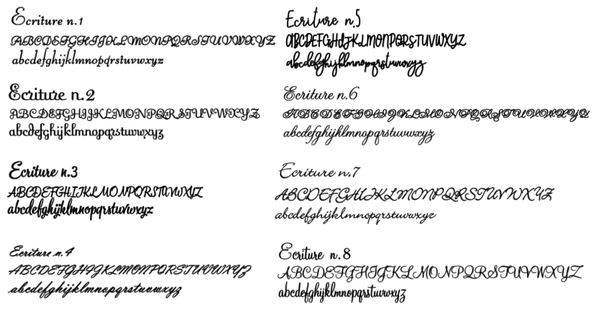 Ecriture n.1
ABCDEFGHIJKLMONPQRSTUVWXYZ
abcdefghijklmnopqrstuwxyz
Ecriture n.2
ABCDEFGHIJKLMONPQRSTUVWXYZ
abcdefghijklmnopqrstuwxyz
Ecriture n.3
ABCDEFGHIJKLMONPQRSTUVWXYZ
abcdefghijklmnopqrstuvwxyz
Ecriture n.4
ABCDEFGHIJKLMONPQRSTUVWXYZ
abcdefghijklmnopqrstuvwxyz
Ecriture n.5
ABCDEFGHIJKLMONPQRSTUVWXYZ
abcdefghijklmnopqrstuvwxyz
Ecriture n.6
ABCDEFGHIJKLMONPQRSTUVWXYZ
abcdefghijklmnopqrstuvwxyz
Ecriture n.7
ABCDEFGHIJKLMONPQRSTUVWXYZ
abcdefghijklmnopqrstuvwxyz
Ecriture n.8
ABCDEFGHIJKLMONPQRSTUVWXYZ
abcdefghijklmnopqrstuvwxyz